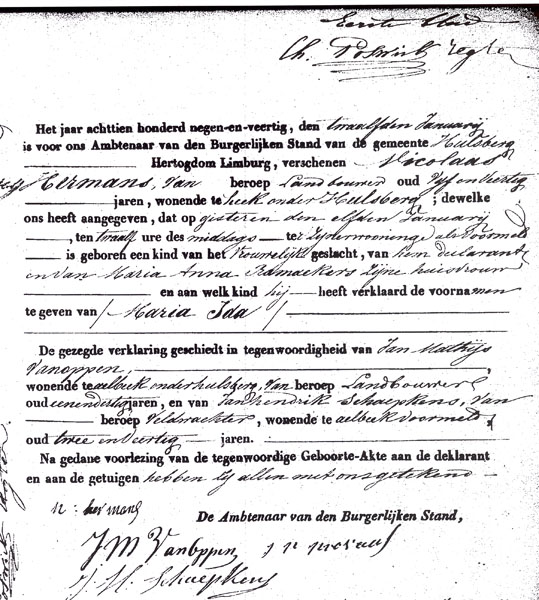 Eerste Blad
Ch.
Het jaar achttien honderd negen-en-veertig, den twaalfden Januarij
is voor ons Ambtenaar van den Burgerlijken Stand van de gemeente Hulsberg
Hertogdom Limburg, verschenen Nicolaas
Hermans, Van beroep Landbouwer oud Vyf en Veertig
jaren, wonende te heek onder Hulsberg; dewelke
ons heeft aangegeven, dat op gisteren den elfden Januarij
, ten twaalf ure des middags te Zijner wooninge als voormeld
is geboren een kind van het Vrouwelijk geslacht, van hem declarant
en van Maria Anna Ramaekers Zijne huisvrouw
en aan welk kind hij heeft verklaard de voornamen
te geven van / Maria Ida /
De gezegde verklaring geschiedt in tegenwoordigheid van Jan Mathijs
Vanoppen,
wonende te aelbeek onder hulsberg, Van beroep Landbouwer
oud eenendertig jaren, en van Jan Hendrik Schaepkens, Van
beroep Veldwachter, wonende te aelbeek voormeld,
oud twee en Veertig jaren.
Na gedane voorlezing van de tegenwoordige Geboorte-Akte aan de deklarant
en aan de getuigen hebben Zij allen met ons getekend
n: hermans
De Ambtenaar van den Burgerlijken Stand,
J M Vanoppen
J. H. Schaepkens